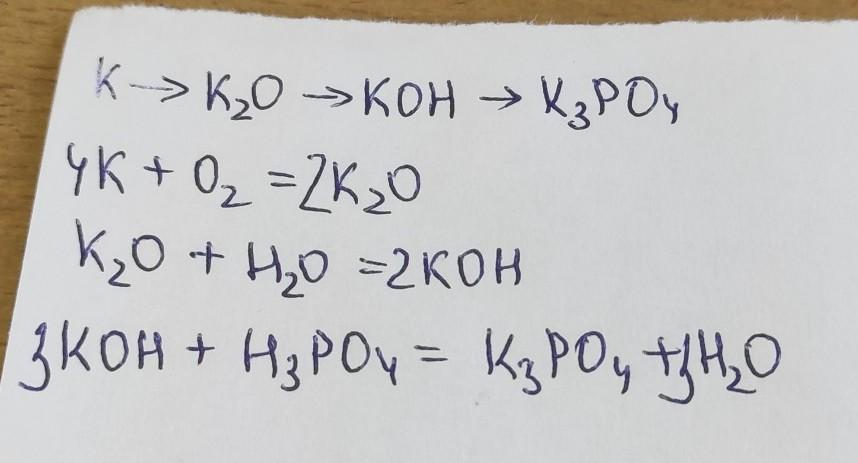 K → K₂O → KOH → K₃PO₄
4K + O₂ = 2K₂O
K₂O + H₂O = 2KOH
3KOH + H₃PO₄ = K₃PO₄ + 3H₂O